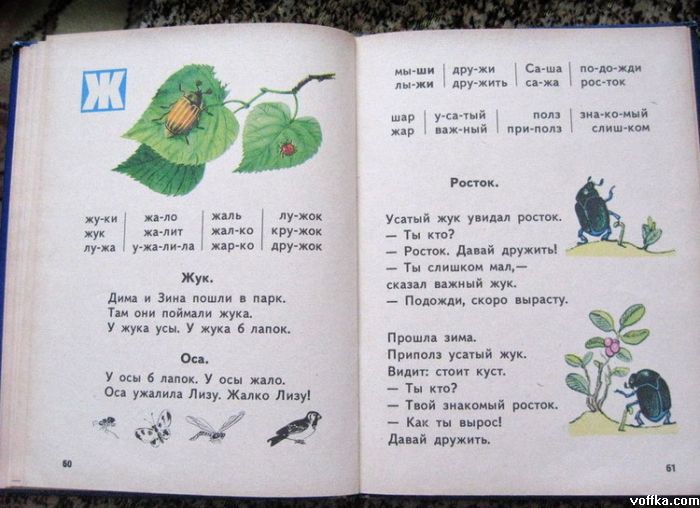 Ж
жу-ки жа-ло жаль лу-жок
жук жа-лит жал-ко кру-жок
лу-жа у-жа-ли-ла жар-ко дру-жок
Жук.
Дима и Зина пошли в парк.
Там они поймали жука.
У жука усы. У жука 6 лапок.
Оса.
У осы 6 лапок. У осы жало.
Оса ужалила Лизу. Жалко Лизу!
60
мы-ши дру-жи Са-ша по-до-жди
лы-жи дру-жить са-жа рос-ток
шар у-са-тый полз зна-ко-мый
жар важ-ный при-полз слиш-ком
Росток.
Усатый жук увидал росток.
— Ты кто?
— Росток. Давай дружить!
— Ты слишком мал,—
сказал важный жук.
— Подожди, скоро вырасту.
Прошла зима.
Приполз усатый жук.
Видит: стоит куст.
— Ты кто?
— Твой знакомый росток.
— Как ты вырос!
Давай дружить.
61
voffka.com